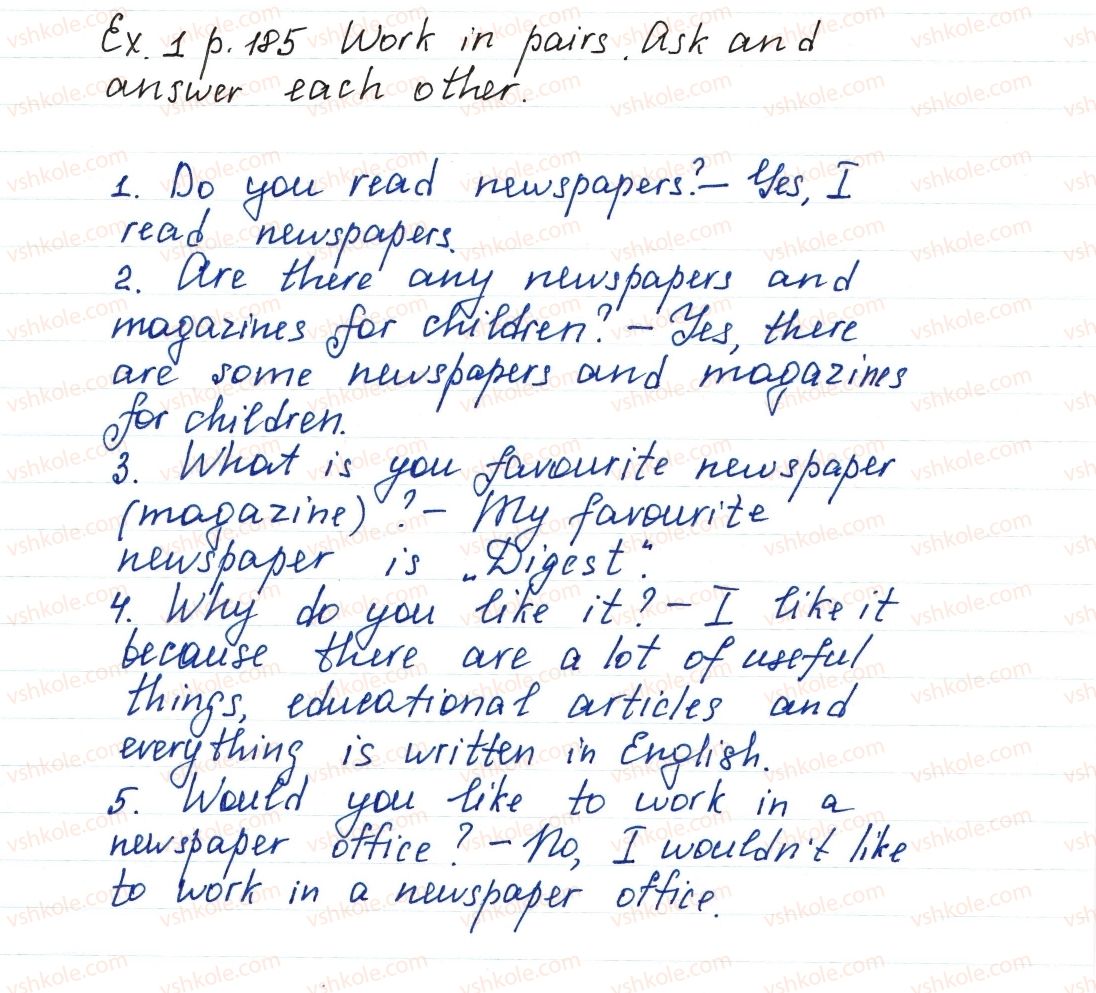 Ex. 1 p. 185 Work in pairs. Ask and
answer each other.
1. Do you read newspapers? – Yes, I
read newspapers.
2. Are there any newspapers and
magazines for children? – Yes, there
are some newspapers and magazines
for children.
3. What is you favourite newspaper
(magazine)? – My favourite
newspaper is „Digest“.
4. Why do you like it? – I like it
because there are a lot of useful
things, educational articles and
everything is written in English.
5. Would you like to work in a
newspaper office? – No, I wouldn't like
to work in a newspaper office.
vshkole.com